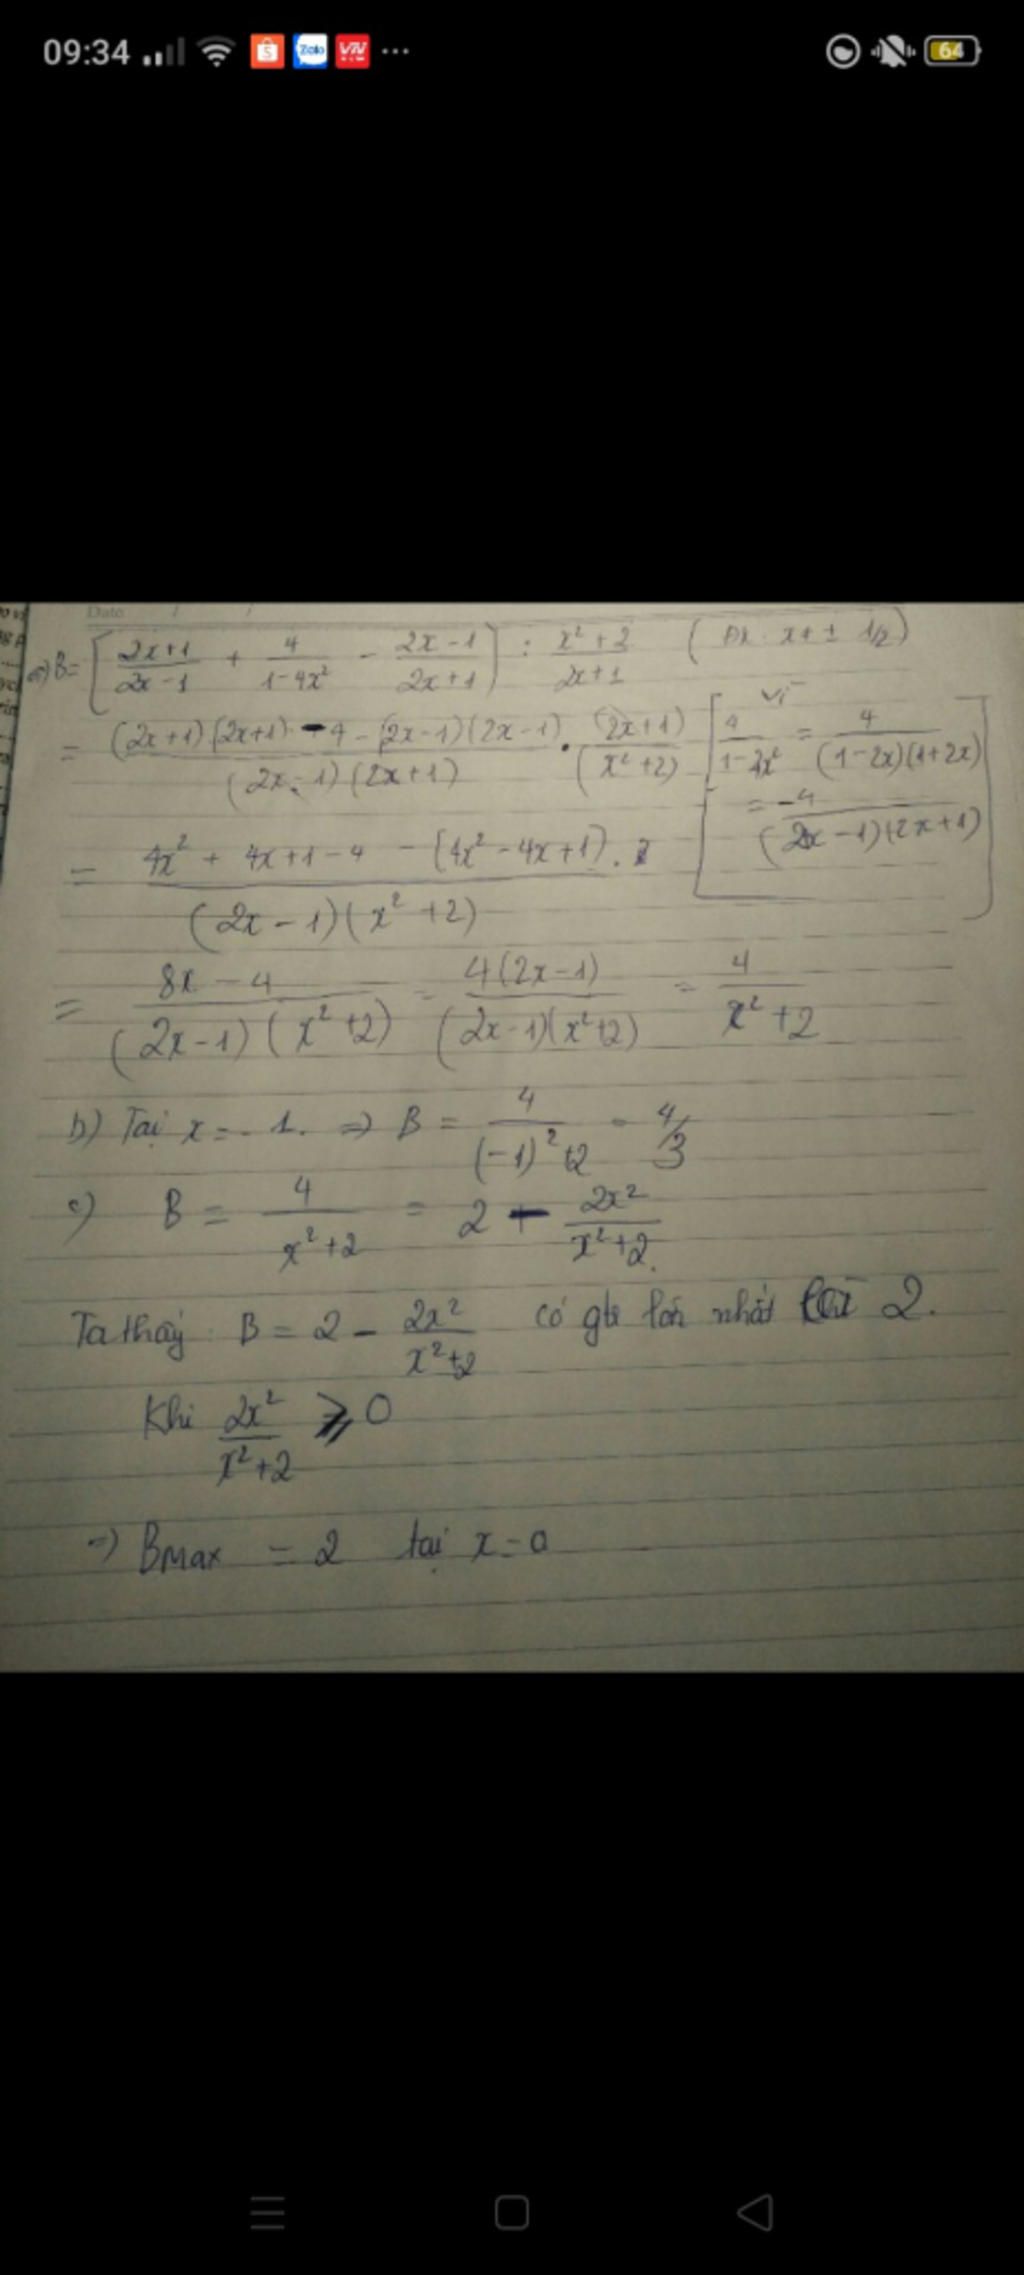 09:34 Zalo VN ... 64
Date / /
a) B = [ (2x+1)/(2x-1) + 4/(1-4x²) - (2x-1)/(2x+1) ] : (x²+2)/(2x+1) (ĐK: x ≠ ± 1/2)
= ((2x+1)(2x+1) - 4 - (2x-1)(2x-1))/((2x-1)(2x+1)) . (2x+1)/(x²+2)
[ vì
4/(1-4x²) = 4/((1-2x)(1+2x))
= -4/((2x-1)(2x+1)) ]
= (4x² + 4x+1-4 - (4x²-4x+1)).
/((2x-1)(x²+2))
= (8x-4)/((2x-1)(x²+2)) = 4(2x-1)/((2x-1)(x²+2)) = 4/(x²+2)
b) Tại x = -1. => B = 4/((-1)²+2) = 4/3
c) B = 4/(x²+2) = 2 - 2x²/(x²+2).
Ta thấy B = 2 - 2x²/(x²+2) có gtr lớn nhất là 2.
Khi 2x²/(x²+2) ⩾ 0
=> BMax = 2 tại x=0